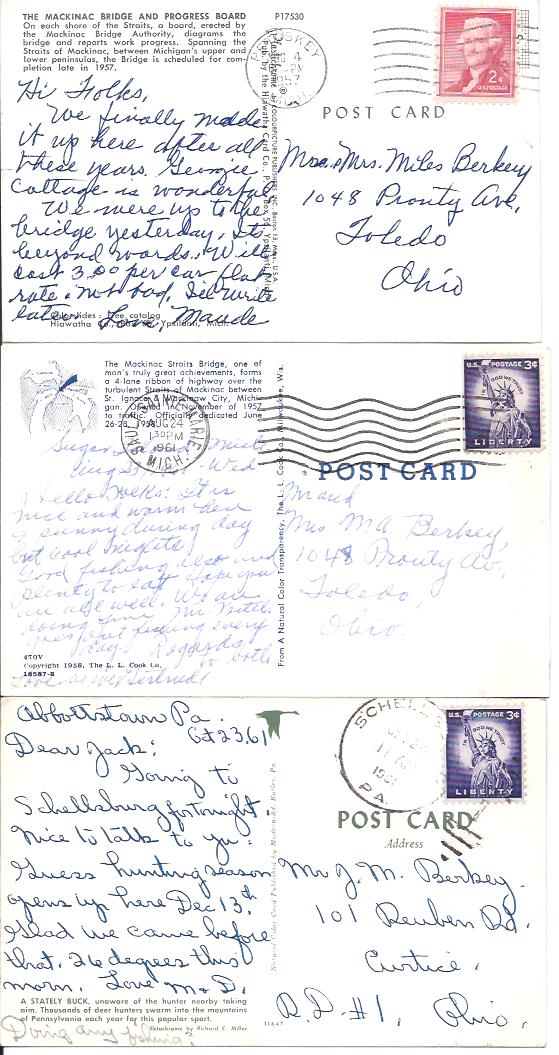 THE MACKINAC BRIDGE AND PROGRESS BOARD
On each shore of the Straits, a board, erected by
the Mackinac Bridge Authority, diagrams the
bridge and reports work progress. Spanning the
Straits of Mackinac, between Michigan's upper and
lower peninsulas, the Bridge is scheduled for com-
pletion late in 1957.
P17530
2¢
U.S. POSTAGE
POST CARD
Hi Folks,
We finally made
it up here after all
these years. Georgie
Cottage is wonderful
We were up to the
bridge yesterday, Its
beyond words. Will
cost 3.00 per car flat
rate. Not bad, I'll write
later. Love Maude
Mr. & Mrs. Miles Berkey
1048 Prouty Ave,
Toledo
Ohio
Hiawatha Co., Ypsilanti, Mich.
The Mackinac Straits Bridge, one of
man's truly great achievements, forms
a 4-lane ribbon of highway over the
turbulent Straits of Mackinac between
St. Ignace & Mackinaw City, Michi-
gan. Opened in November of 1957
to traffic. Officially dedicated June
26-28, 1958.
SAULT STE. MARIE
AUG 24
1 30 PM
1961
MICH.
U.S. POSTAGE 3¢
IN GOD WE TRUST
LIBERTY
POST CARD
Hello Folks: It is
nice and warm here
& sunny during day
but cool nights
Good fishing also and
plenty to eat. Hope you
are all well. We are
doing fine. Mr.
goes out fishing every
day. Regards
to both
Love as ever Gertrude
Mr and
Mrs M A Berkey,
1048 Prouty Av,
Toledo,
Ohio.
From A Natural Color Transparency, The L. L. Cook Co., Milwaukee, Wis.
470V
Copyright 1958, The L. L. Cook Co.
18587-8
Abbottstown Pa.
Oct 23, 61
Dear Jack:
Going to
Schellsburg for tonight.
Nice to talk to you.
Guess hunting season
opens up here Dec 13th.
Glad we came before
that. 26 degrees this
morn. Love M & D.
PA.
U.S. POSTAGE 3¢
IN GOD WE TRUST
LIBERTY
POST CARD
Address
Mr J. M. Berkey.
101 Reuben Rd.
Curtice,
R.D. #1, Ohio.
A STATELY BUCK, unaware of the hunter nearby taking
aim. Thousands of deer hunters swarm into the mountains
of Pennsylvania each year for this popular sport.
Ektachrome by Richard C. Miller
11647
Doing any fishing?